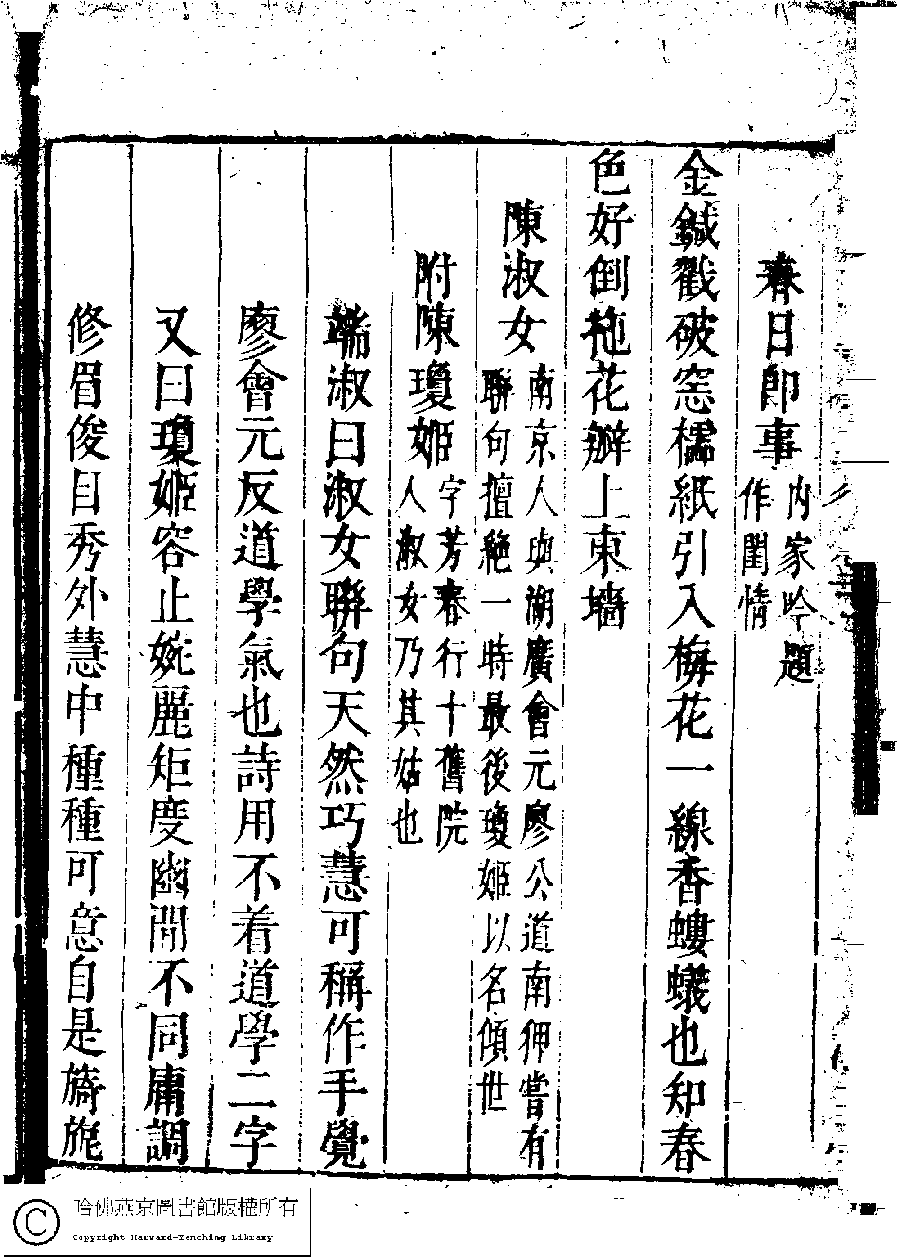 春日即事
内家吟題
作閨情
金鍼戳破窓櫺紙引入梅花一線香螻蟻也知春
色好倒拖花瓣上東墻
陳淑女
南京人與湖廣會元廖公道南狎嘗有
聯句擅絶一時最後瓊姬以名傾世
附陳瓊姬
字芳春行十舊院
人淑女乃其姑也
端淑曰淑女聯句天然巧慧可稱作手覺
廖會元反道學氣也詩用不着道學二字
又曰瓊姬容止婉麗矩度幽閒不同庸調
修眉俊目秀外慧中種種可意自是旖旎
哈佛燕京圖書館版權所有
Copyright Harvard-Yenching Library